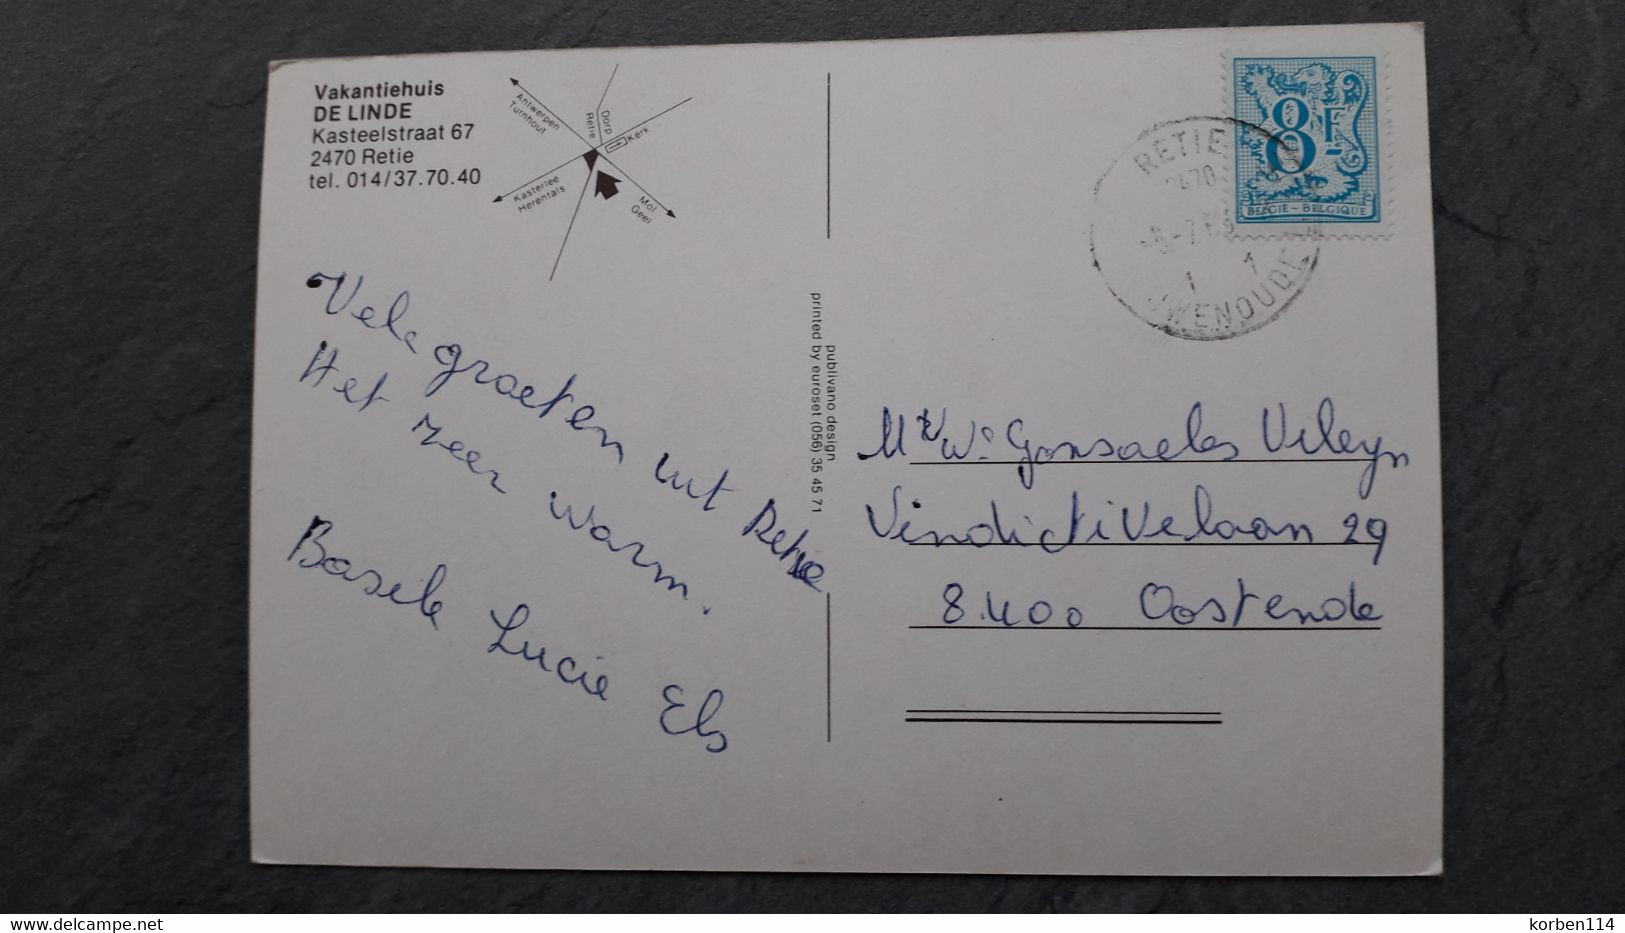 Vakantiehuis
DE LINDE
Kasteelstraat 67
2470 Retie
tel. 014/37.70.40
Antwerpen
Turnhout
Dorp
Retie
Kerk
Kasterlee
Herentals
Mol
Geel
Vele groeten uit Retie
Het zeer warm.
Basile Lucie Els
publivano design
printed by euroset (056) 35 45 71
RETIE
2470
1 1
8F
BELGIË-BELGIQUE
Gonsaeles Vileyn
Vindictivelaan 29
8.400 Oostende
www.delcampe.net
korben114